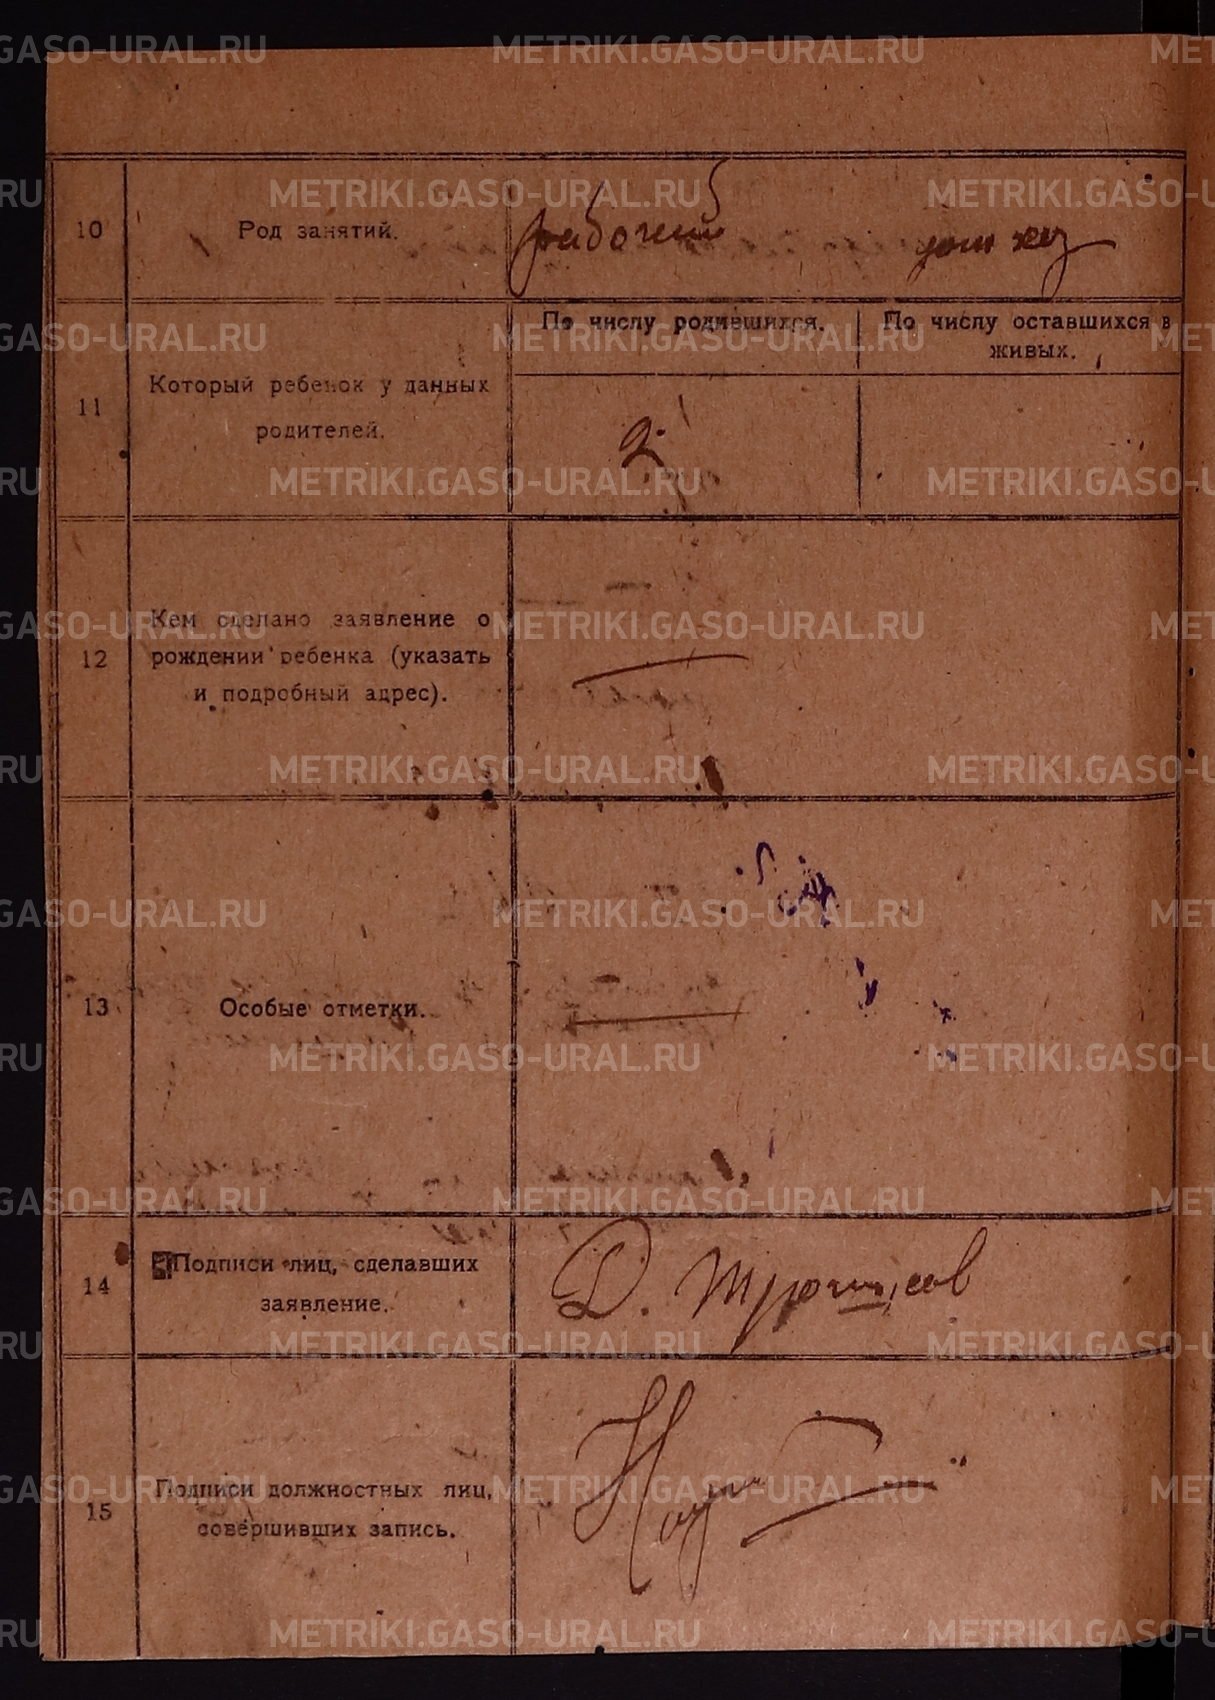 METRIKI.GASO-URAL.RU
10 Род занятий. рабочий дом хоз
11 Который ребенок у данных
родителей.
По числу родившихся.
По числу оставшихся в
живых.
2
12 Кем сделано заявление о
рождении ребенка (указать
и подробный адрес).
13 Особые отметки.
14 Подписи лиц, сделавших
заявление.
Д.
15 Подписи должностных лиц,
совершивших запись.